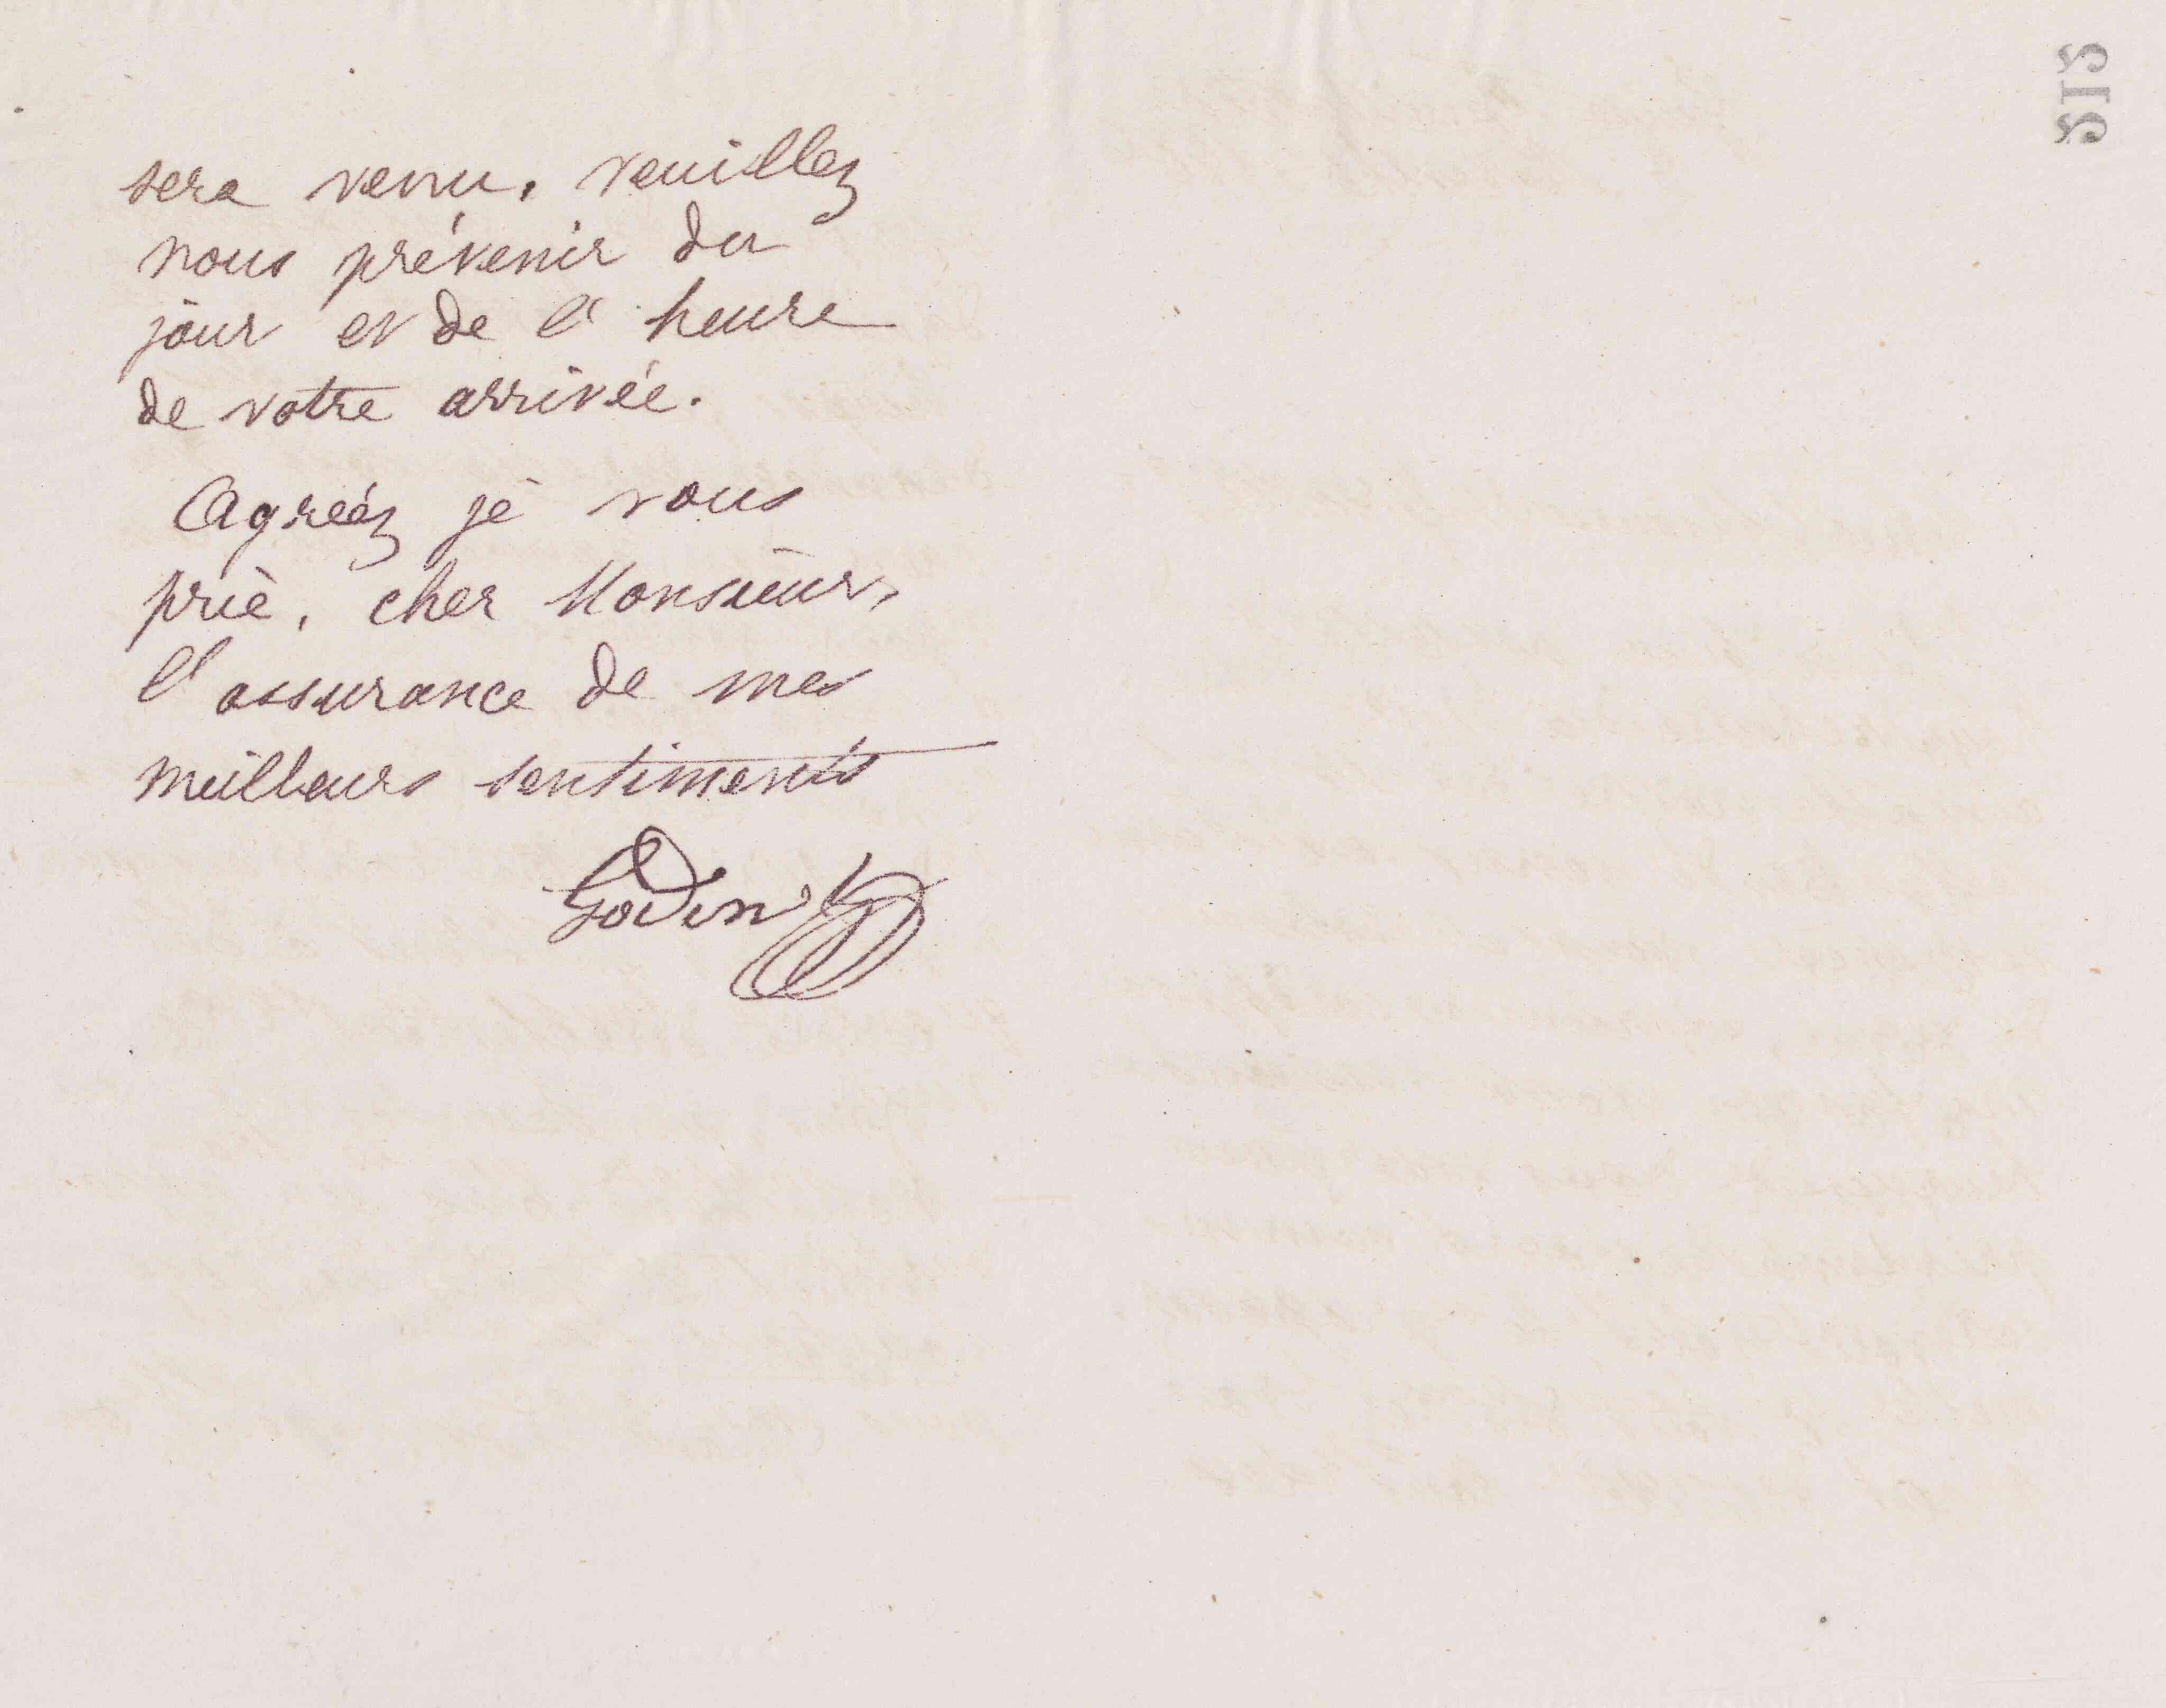 sera venu, veuillez
nous prévenir du
jour et de l'heure
de votre arrivée.
Agréez je vous
prie, cher Monsieur,
l'assurance de mes
meilleurs sentiments
Godin
515